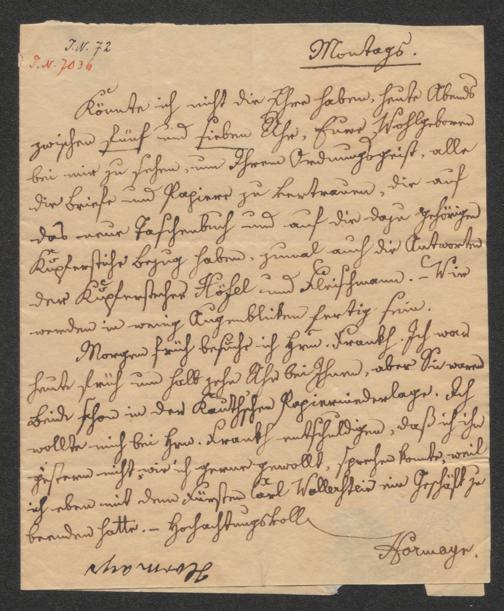 I.N. 72
I.N. 7036
Montags.
Könnte ich nicht die Ehre haben, heute Abends
zwischen fünf und sieben Uhr, Euer Wohlgeboren
bei mir zu sehen, um Ihrem Ordnungsgeist, alle
die Briefe und Papiere zu vertrauen, die auf
das neue Taschenbuch und auf die dazu gehörigen
Kupferstiche bezug haben, zumal auch die Antworten
der Kupferstecher Höfel und Fleischmann. – Wir
werden in wenig Augenblicken fertig sein.
Morgen früh besuche ich Hrn. Frankh. Ich war
heute früh um halb zehn Uhr bei Ihnen, aber Sie waren
beide schon in der Papierniederlage. Ich
wollte mich bei Hrn. Frankh entschuldigen, daß ich ihn
gestern nicht, wie ich gerne gewollt, sprechen konnte, weil
ich eben mit dem Fürsten Carl Wallerstein ein Geschäft zu
beenden hatte. – Hochachtungsvoll
Hormayr.
Hormayr